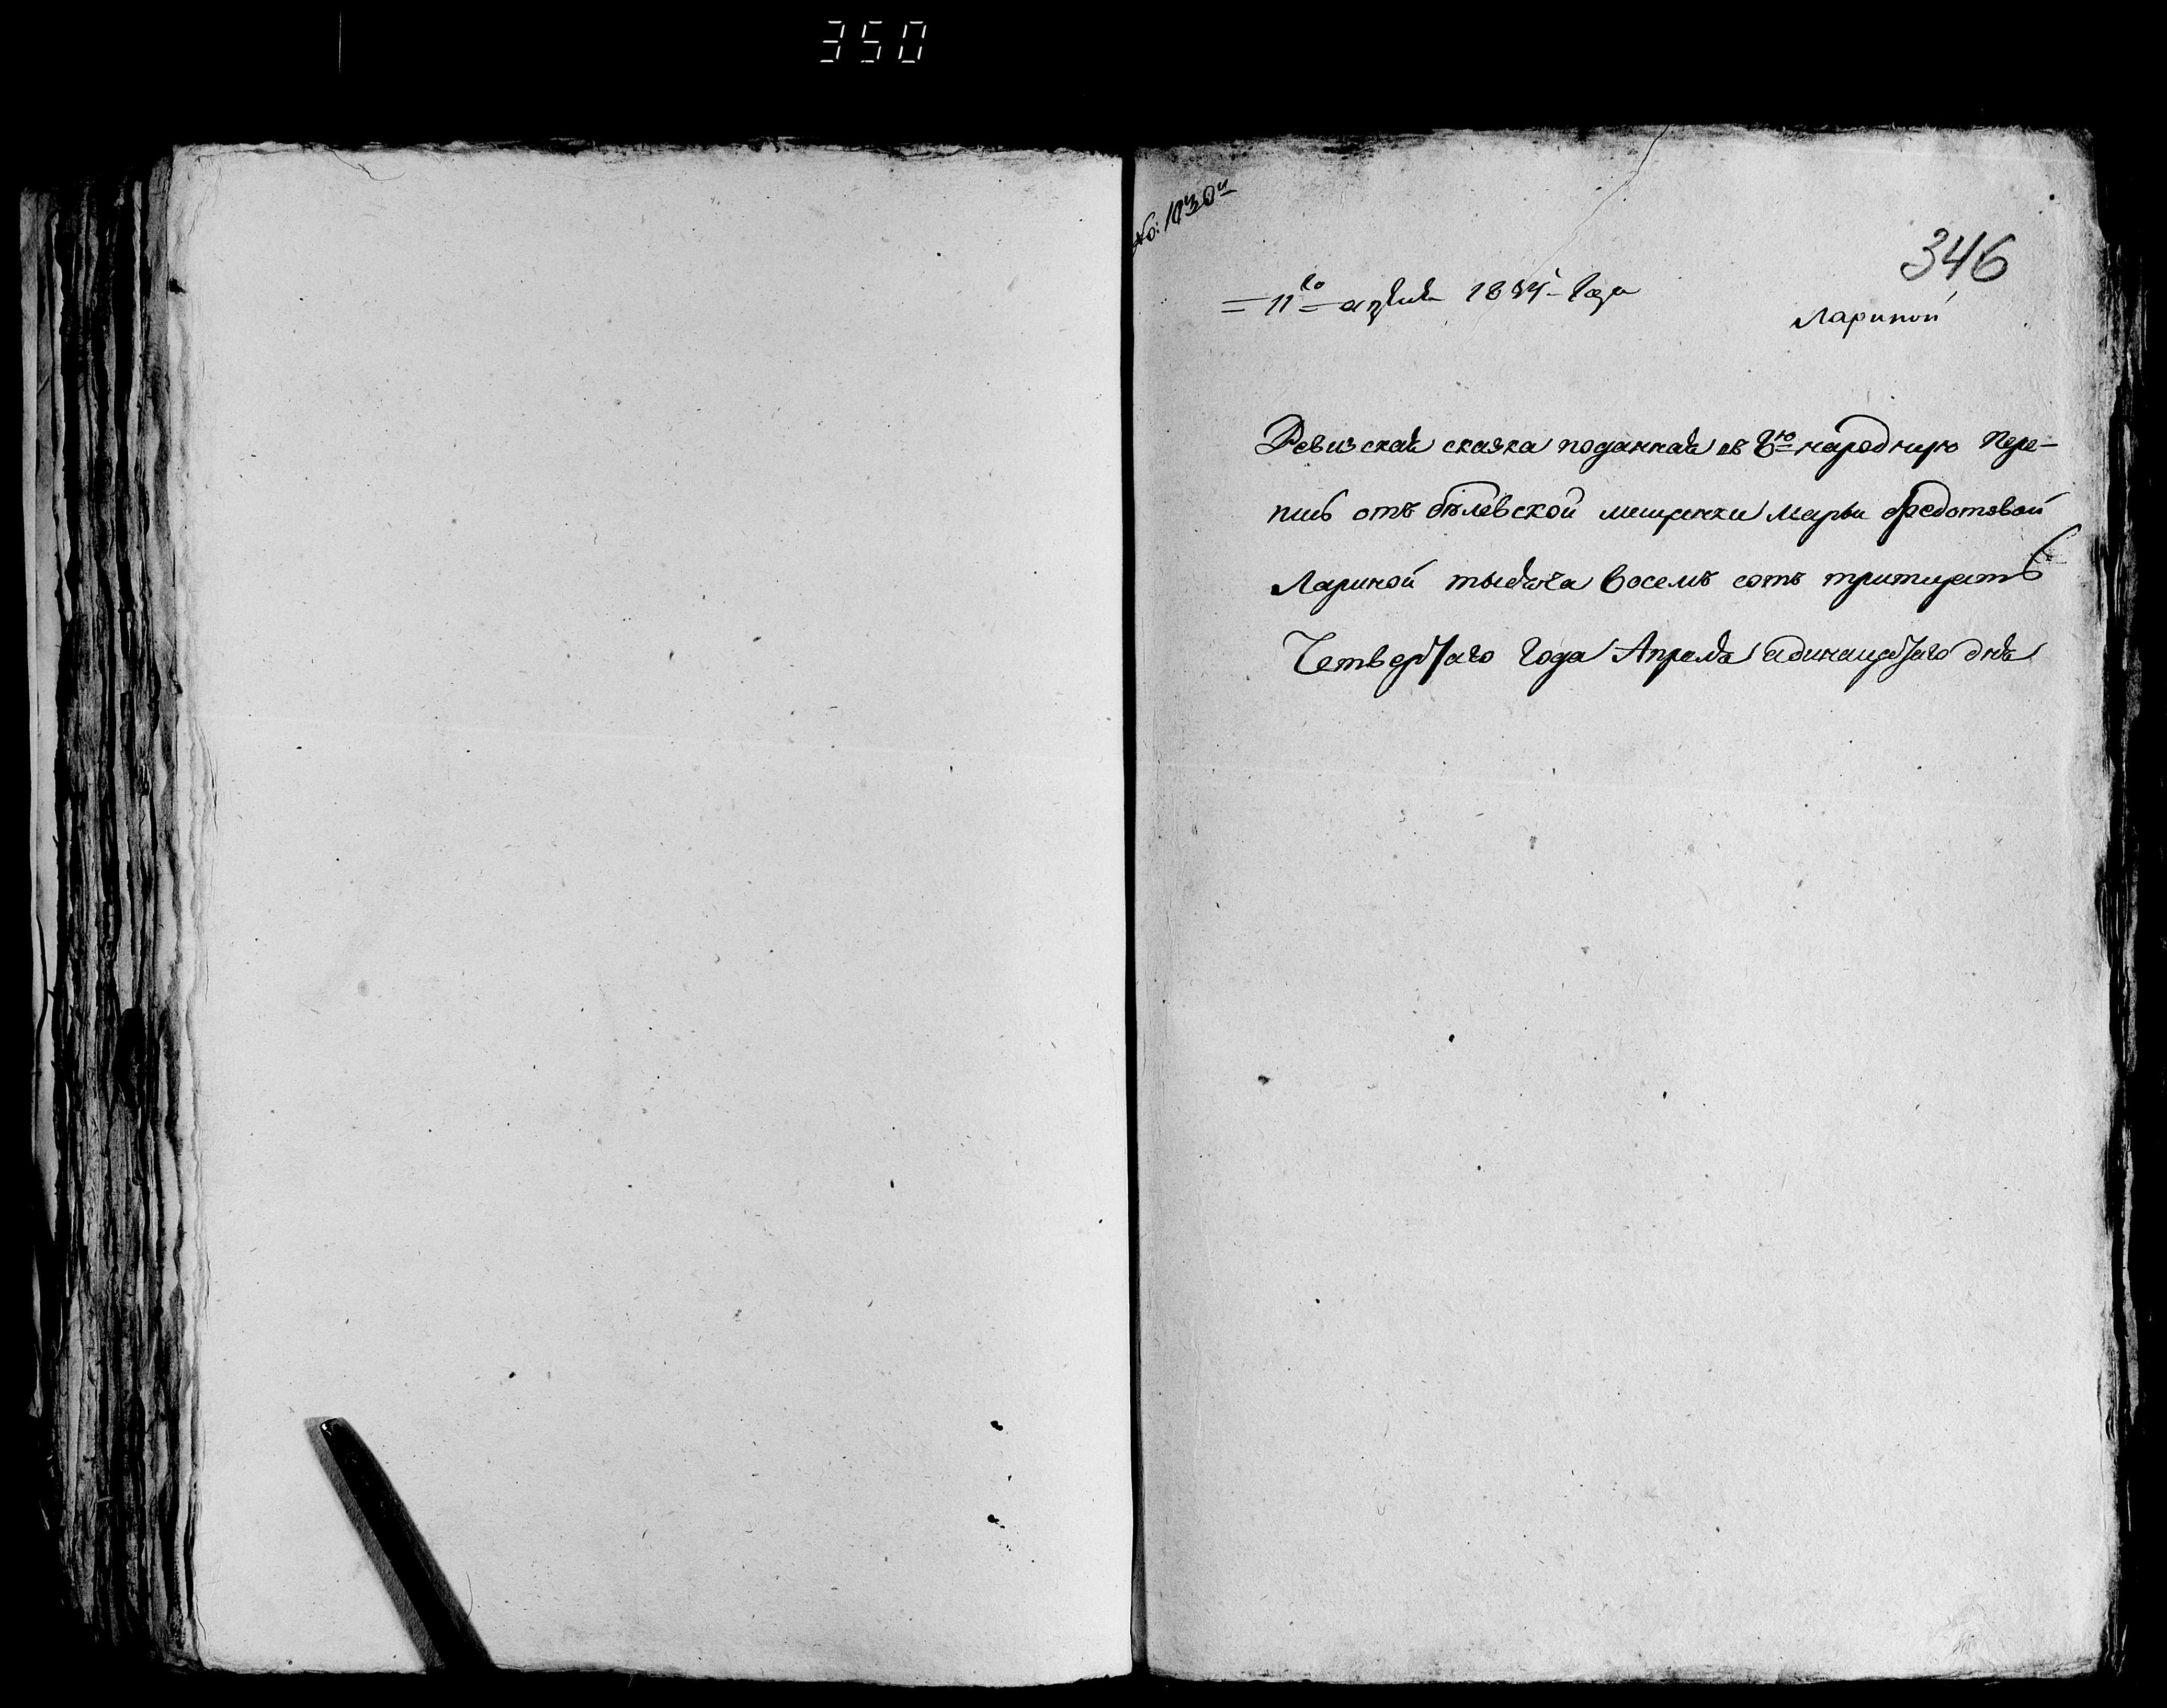 350
No: 1030й
346
= 11го = апреля 1834 года
Лариной
Ревизская сказка поданная въ 8ю народную пере-
пись отъ белевской мещанки Марьи Федотовой
Лариной тысяча восемъ сотъ тритцать
Четвертаго года Апреля адинацетаго дня